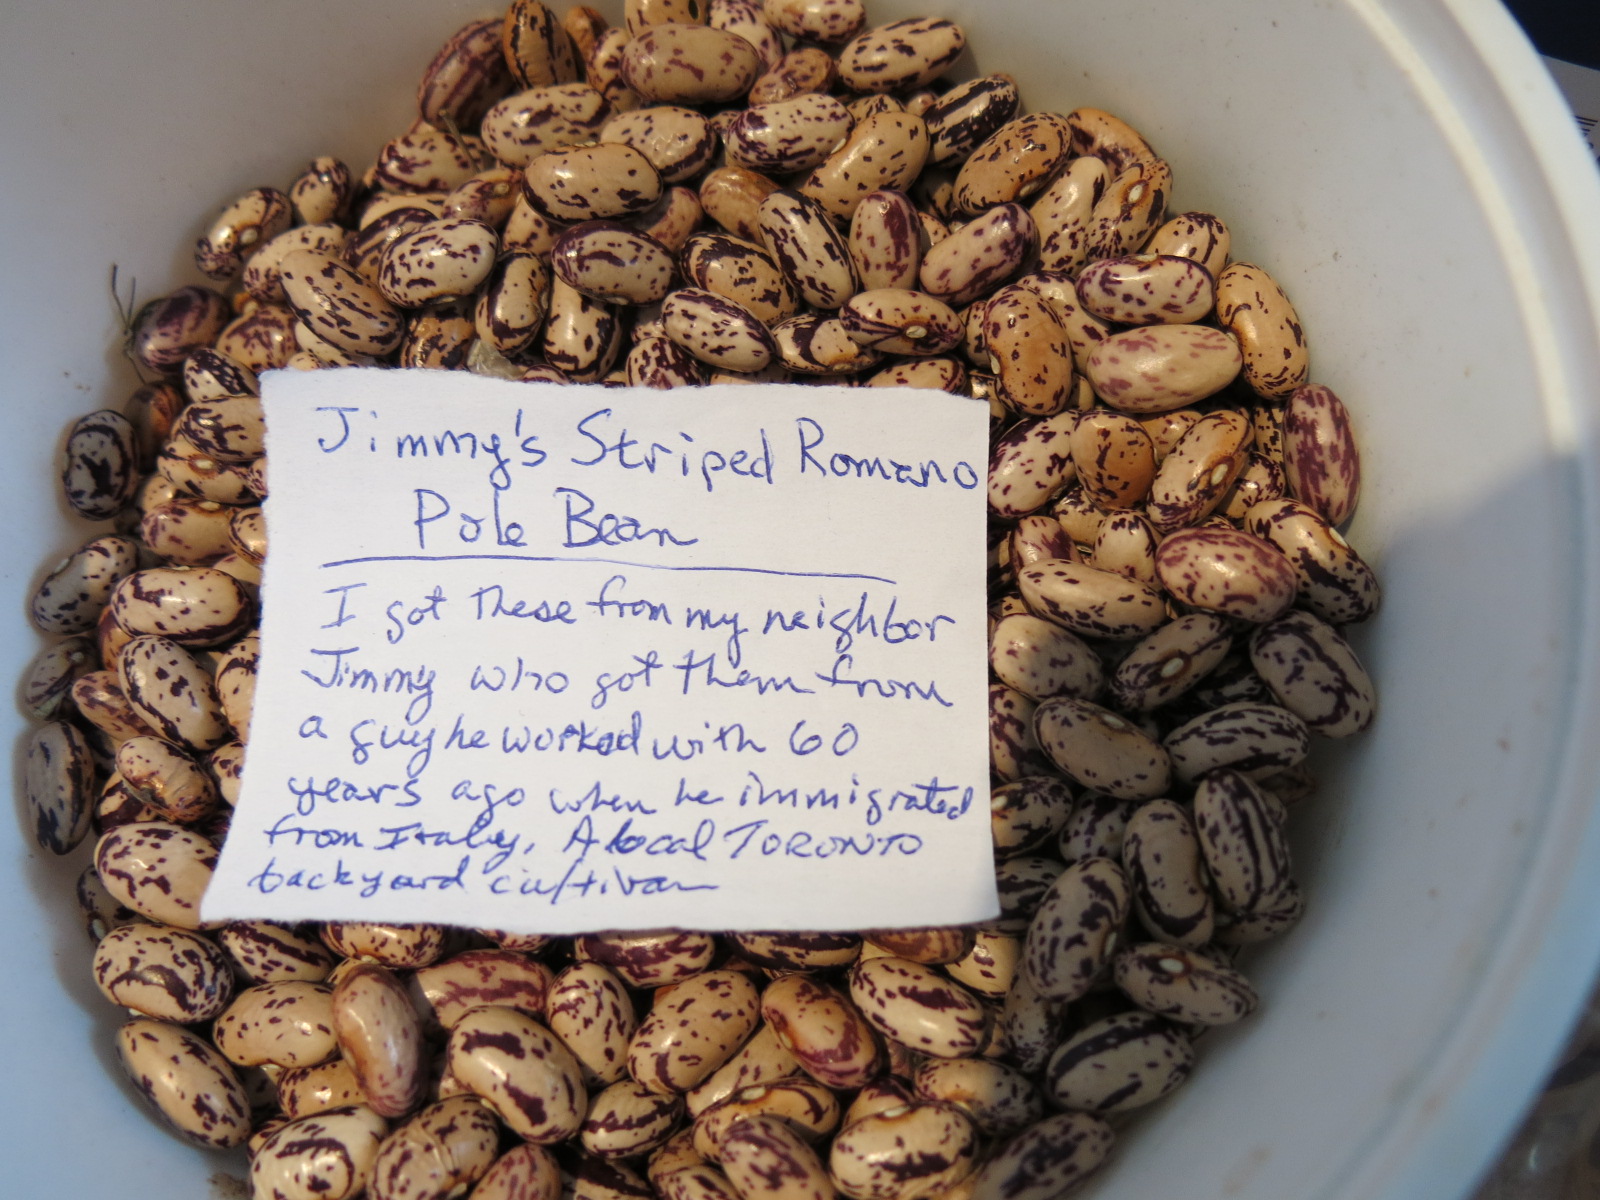 Jimmy's Striped Romano
Pole Bean
I got these from my neighbor
Jimmy who got them from
a guy he worked with 60
years ago when he immigrated
from Italy, A local TORONTO
backyard cultivar